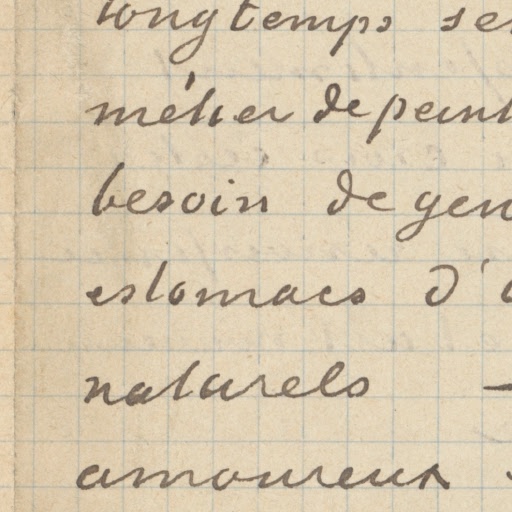 longtemps se
métier de peint
besoin de gen
estomacs d'
naturels —
amoureux